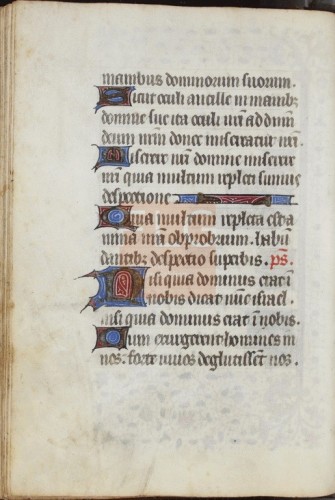 manibus dominorum suorum.
Sicut oculi ancille in manibȝ
domine sue ita oculi nr̄i ad dn̄m
deum nr̄m donec misereatur nr̄i.
Miserere nr̄i domine miserere
nr̄i quia multum repleti sumus
despectione
Quia multum repleta est a
nima nr̄a obprobrium habū
dantibȝ despectio superbis. ps̄.
Nisi quia dominus erat ī
nobis dicat nūc israel.
nisi quia dominus erat ī nobis.
Cum exurgerent homines in
nos. forte vivos deglutissēt nos.